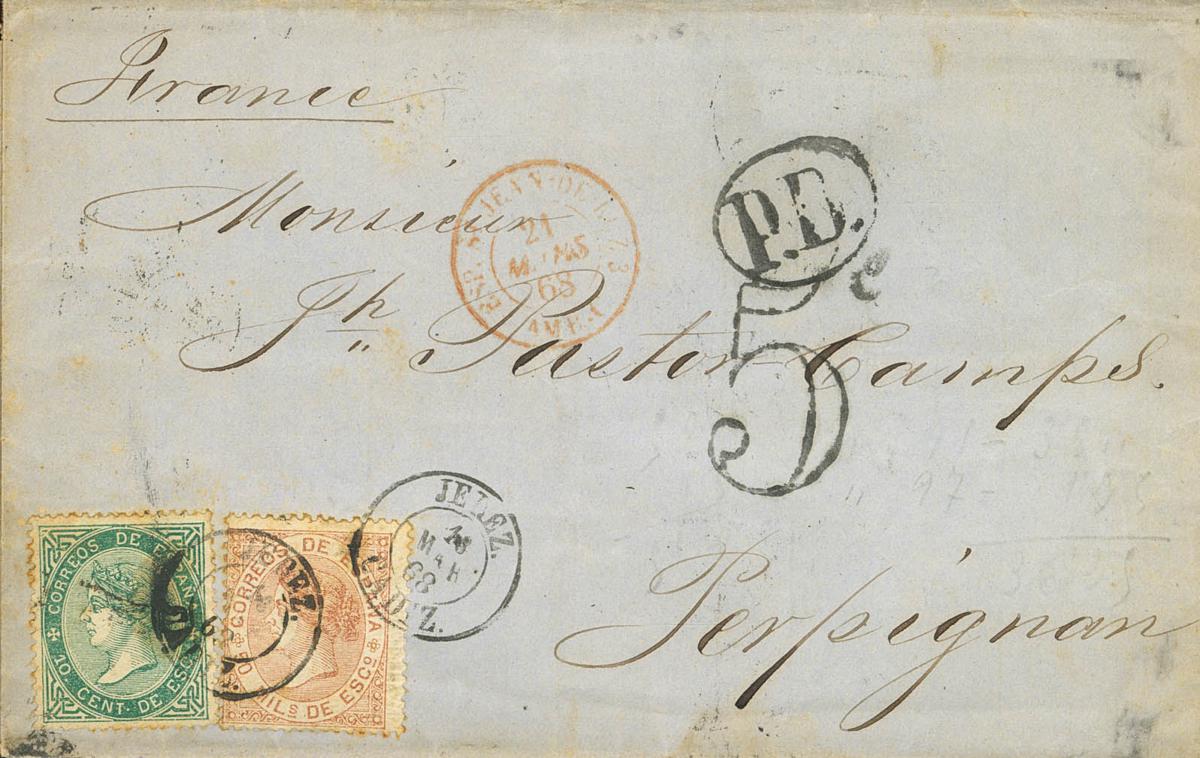 France
Monsieur
ESP. St JEAN-DE-LUZ 3
21
MARS
68
AMB.A
P.D.
Jh Pastor Camps.
5e
JEREZ.
MAR
68
CADIZ.
Perpignan
CORREOS DE ESPAÑA
10 CENT. DE ESCO
CORREOS DE ESPAÑA
50 MILS DE ESCO